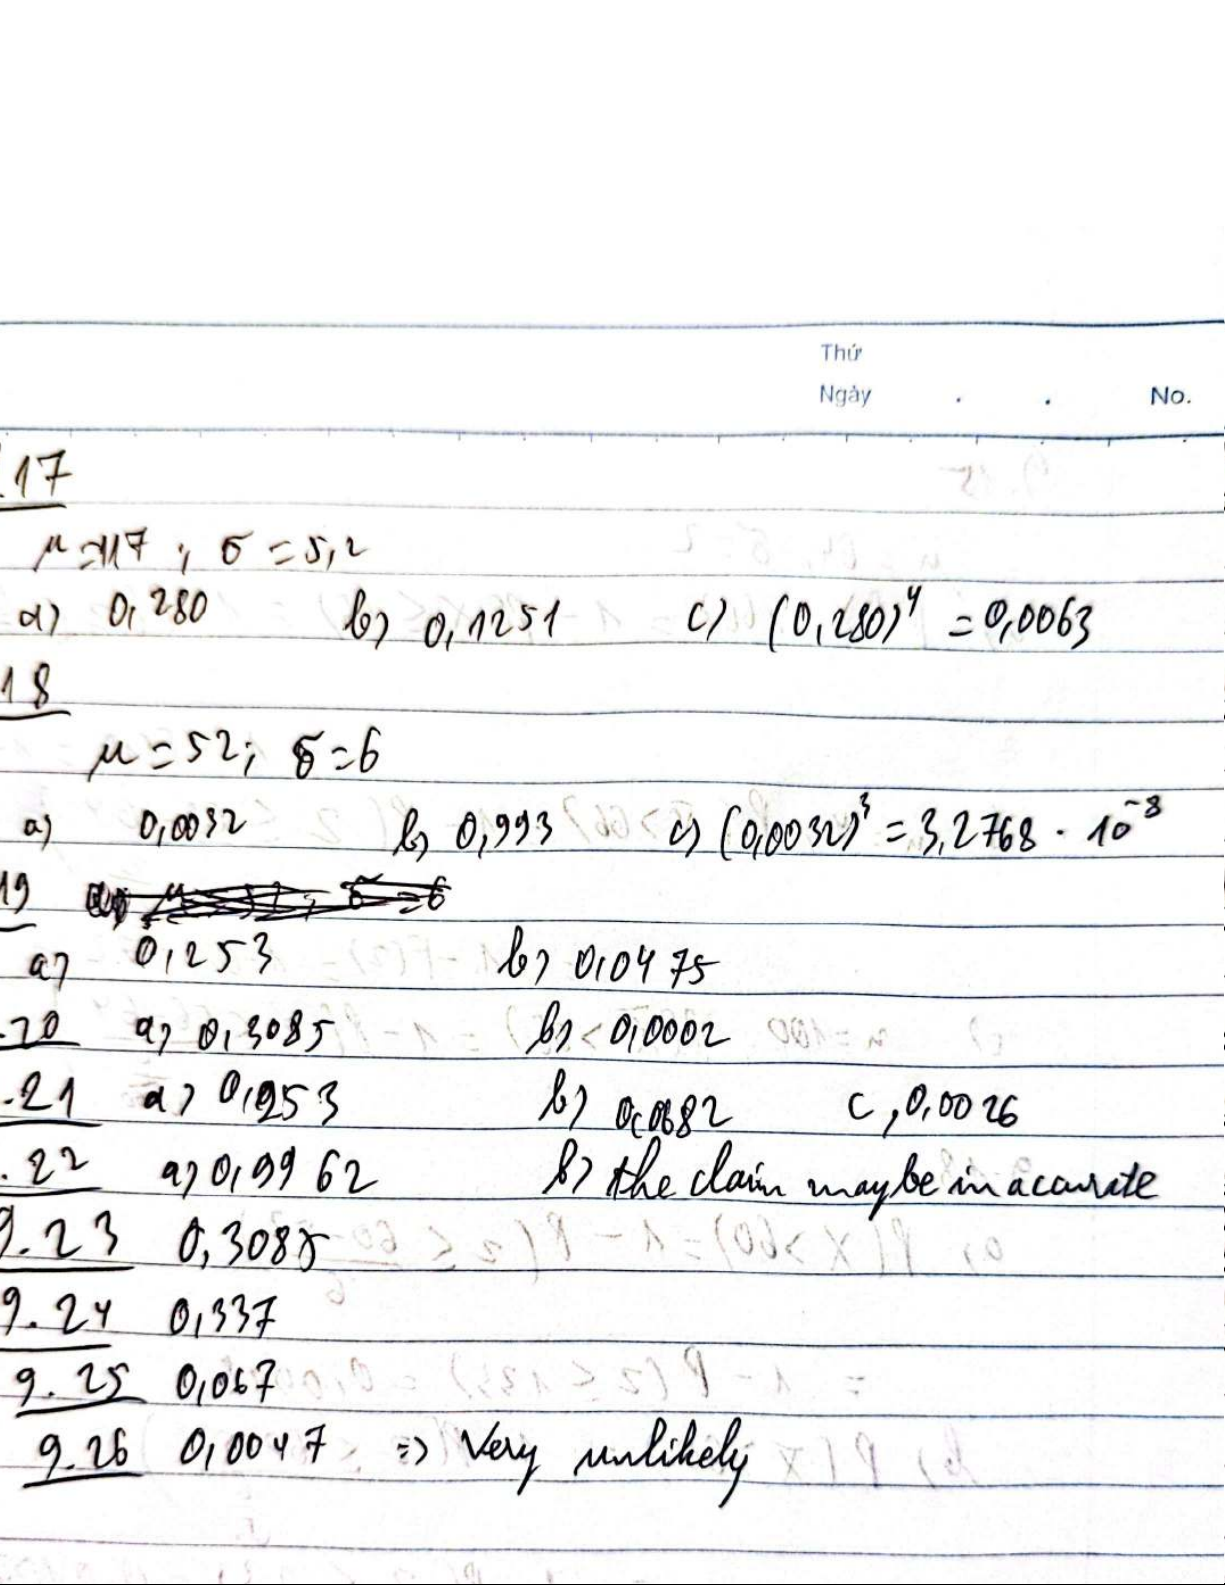 Thứ
Ngày . . No.
.17
μ=117 ; σ = 5,2
a) 0,280 b) 0,1251 c) (0,280)⁴ = 0,0063
18
μ = 52; σ = 6
a) 0,0032 b) 0,993 c) (0,0032)³ = 3,2768 . 10⁻⁸
19
a) 0,253 b) 0,0475
.20 a) 0,3085 b) 0,0002
.21 a) 0,253 b) 0,0682 c, 0,0026
.22 a) 0,9962 b) the claim may be inaccurate
9.23 0,3085
9.24 0,337
9.25 0,067
9.26 0,0047 => Very unlikely